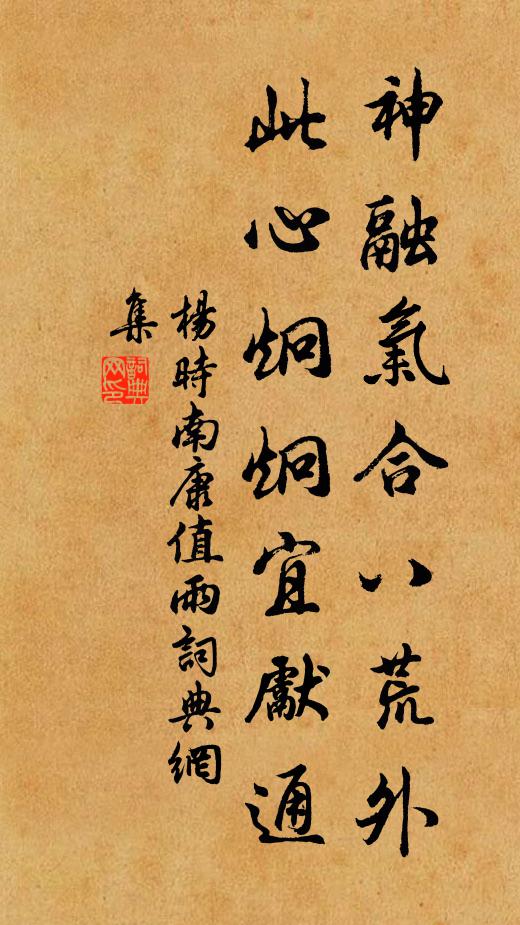 神融氣合八荒外
此心炯炯宜獻通
楊時南康值雨詞典網
集
詞典
网印